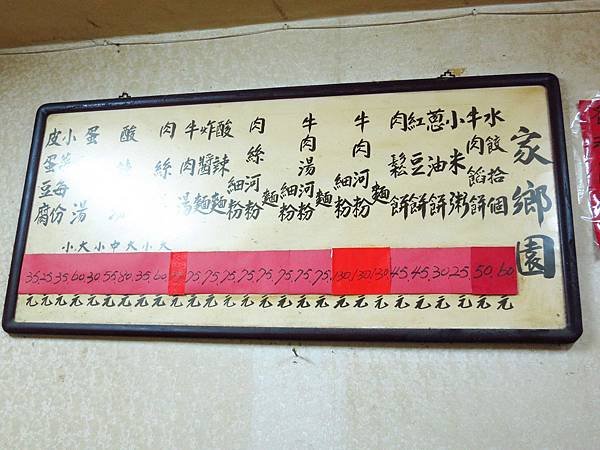 家鄉園
水餃拾個
牛肉餡餅
小米粥
蔥油餅
紅豆餅
肉鬆餅
牛肉
麵
河粉
細粉
牛肉湯
麵
河粉
細粉
肉絲
麵
河粉
細粉
酸辣麵
炸醬麵
牛肉湯
肉絲
酸
蛋 湯
小菜每份
皮蛋豆腐
小大小中大小大
35.25.35.60.30.55.80.35.60. 75.75.75.75.75.75.75.75.130.130.130.45.45.30.25.50.60
元元元元元元元元元元元元元元元元元元元元元元元元元元元